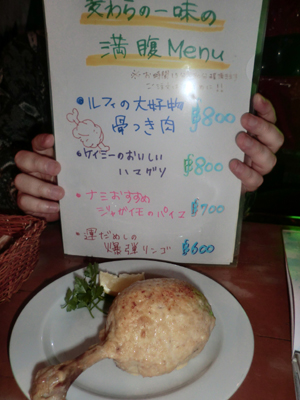 麦わらの一味の
満腹Menu
・ルフィの大好物
骨つき肉 ฿800
・ケイミーのおいしい
ハマグリ ฿800
・ナミおすすめ
ジャガイモのパイユ ฿700
・運だめしの
爆弾リンゴ ฿600